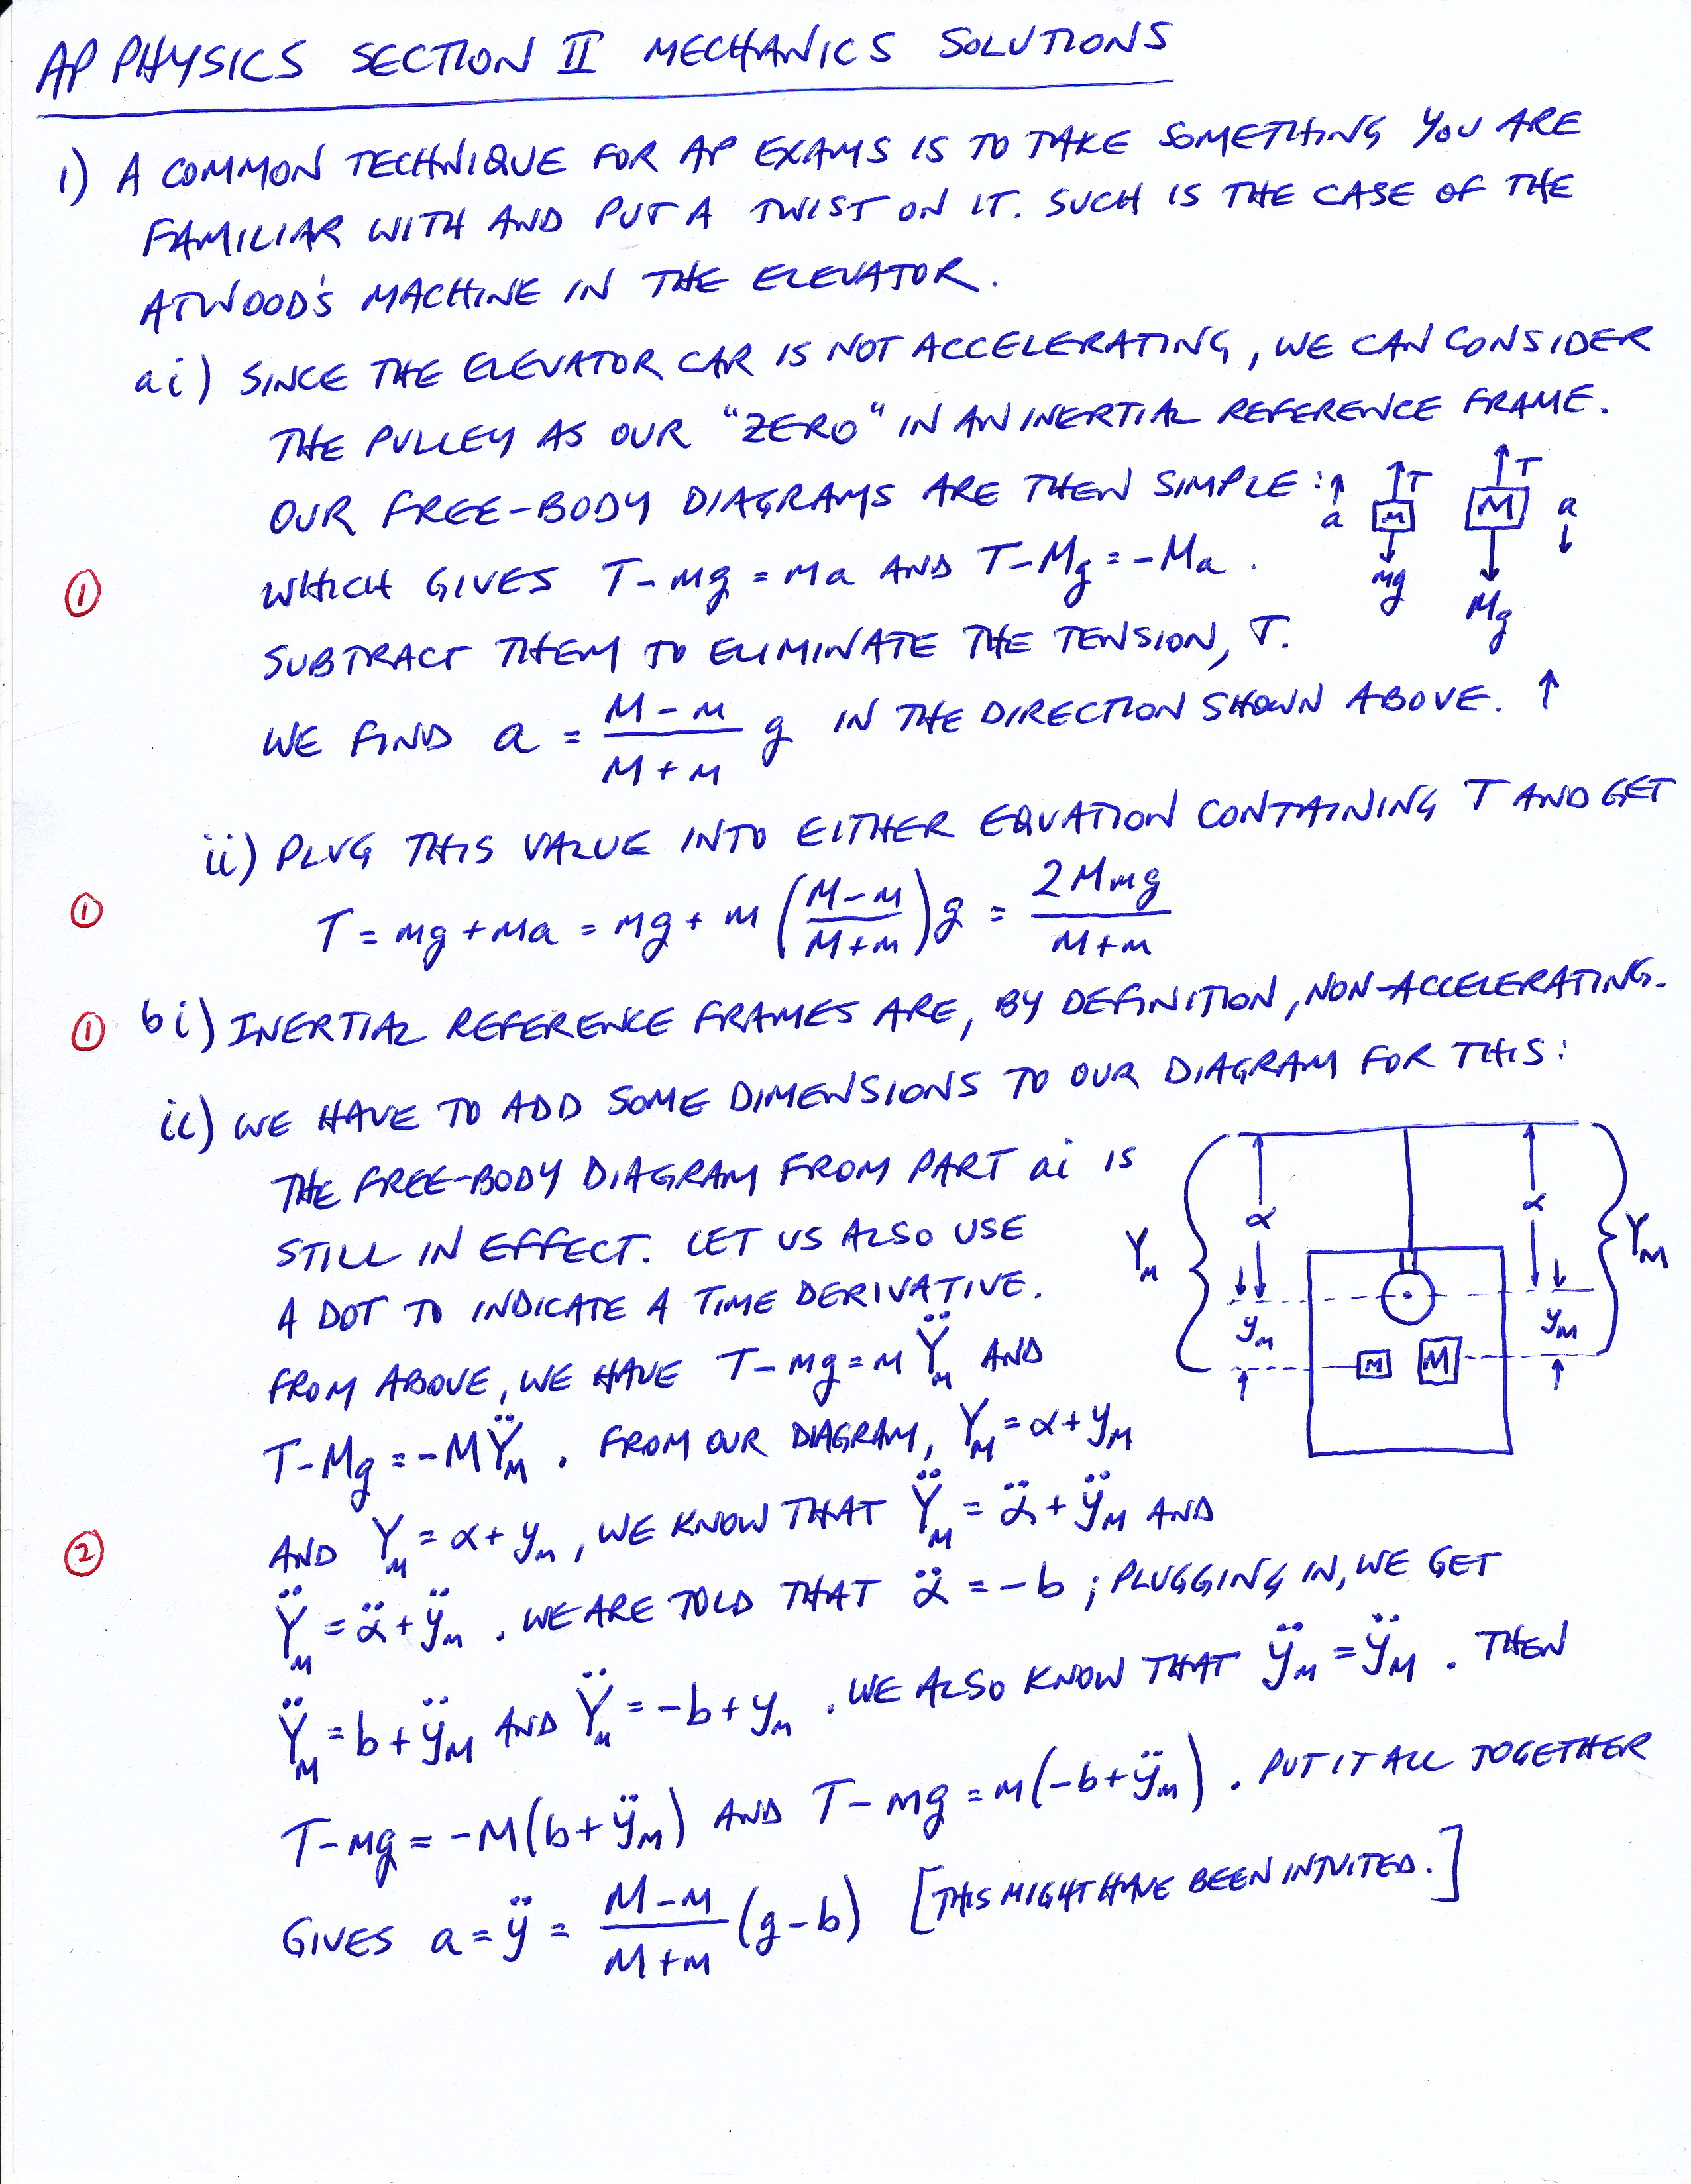 AP PHYSICS SECTION II MECHANICS SOLUTIONS
1) A COMMON TECHNIQUE FOR AP EXAMS IS TO TAKE SOMETHING YOU ARE
FAMILIAR WITH AND PUT A TWIST ON IT. SUCH IS THE CASE OF THE
ATWOOD'S MACHINE IN THE ELEVATOR.
ai) SINCE THE ELEVATOR CAR IS NOT ACCELERATING, WE CAN CONSIDER
THE PULLEY AS OUR "ZERO" IN AN INERTIAL REFERENCE FRAME.
OUR FREE-BODY DIAGRAMS ARE THEN SIMPLE: ↑ a T m mg T M Mg a ↓
① WHICH GIVES T - mg = ma AND T - Mg = -Ma .
SUBTRACT THEM TO ELIMINATE THE TENSION, T.
WE FIND a = (M - m)/(M + m) g IN THE DIRECTION SHOWN ABOVE. ↑
ii) PLUG THIS VALUE INTO EITHER EQUATION CONTAINING T AND GET
① T = mg + ma = mg + m ((M - m)/(M + m)) g = 2Mmg/(M + m)
① bi) INERTIAL REFERENCE FRAMES ARE, BY DEFINITION, NON-ACCELERATING.
ii) WE HAVE TO ADD SOME DIMENSIONS TO OUR DIAGRAM FOR THIS:
THE FREE-BODY DIAGRAM FROM PART ai IS
STILL IN EFFECT. LET US ALSO USE
A DOT TO INDICATE A TIME DERIVATIVE.
FROM ABOVE, WE HAVE T - mg = m Ÿm AND
T - Mg = -M ŸM . FROM OUR DIAGRAM, YM = α + yM
② AND Ym = α + ym , WE KNOW THAT ŸM = α̈ + ÿM AND
Ÿm = α̈ + ÿm . WE ARE TOLD THAT α̈ = -b ; PLUGGING IN, WE GET
ŸM = b + ÿM AND Ÿm = -b + ym . WE ALSO KNOW THAT ÿm = ÿM . THEN
T - mg = -M(b + ÿM) AND T - mg = m(-b + ÿm) . PUT IT ALL TOGETHER
GIVES a = ÿ = (M - m)/(M + m) (g - b) [THIS MIGHT HAVE BEEN INTUITED.]
α α
Ym YM
ym yM
m M